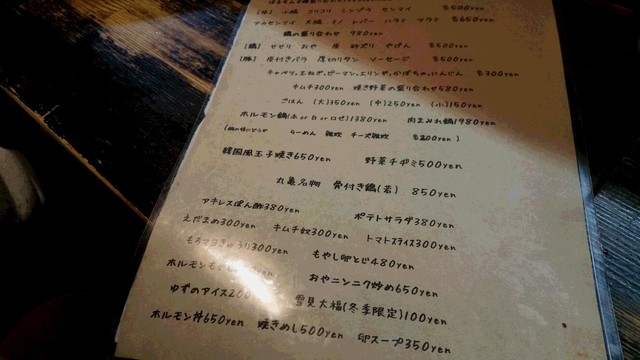 [牛] 小腸 コリコリ シンゾウ センマイ 各500yen
アカセンマイ 大腸 ミノ レバー ハラミ ツラミ 各650yen
鶏の盛り合わせ 980yen
[鶏] せせり おや 皮 砂ズリ やげん 各500yen
[豚] 皮付きバラ 厚切りタン ソーセージ 各500yen
キャベツ、玉ねぎ、ピーマン、エリンギ、かぼちゃ、にんじん 各300yen
キムチ300yen 焼き野菜の盛り合わせ580yen
ごはん (大)350yen (中)250yen (小)150yen
ホルモン鍋(赤 or 白 or ロゼ)1380yen 肉まみれ鍋1980yen
らーめん 雑炊 チーズ雑炊 各200yen )
韓国風玉子焼き650yen 野菜チヂミ500yen
丸亀名物 骨付き鶏(若) 850yen
アキレスぽん酢380yen ポテトサラダ380yen
えだまめ300yen キムチ奴300yen トマトスライス300yen
もろマヨきゅうり300yen もやし卵とじ480yen
ホルモンも おやニンニク炒め650yen
ゆずのアイス200 雪見大福(冬季限定)100yen
ホルモン丼650yen 焼きめし500yen 卵スープ350yen